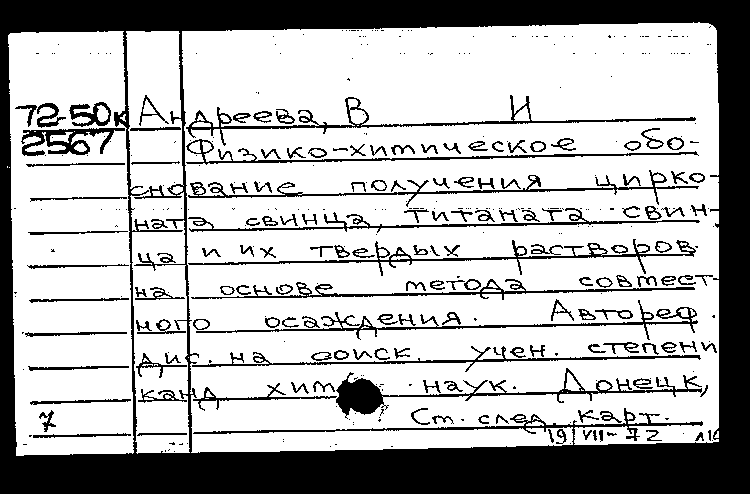 72-50к Андреева, В И
2567 Физико-химическое обо-
снование получения цирко-
ната свинца, титаната свин-
ца и их твердых растворов
на основе метода совмест-
ного осаждения. Автореф.
дис. на соиск. учен. степени
канд хим наук. Донецк,
7 Ст. след. карт.
19/VII-72